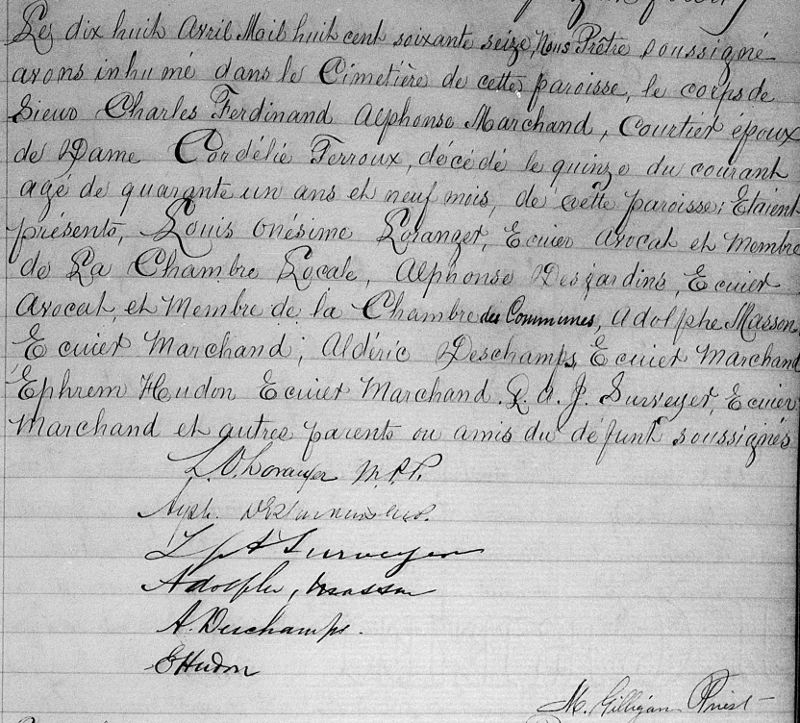 Les dix huit Avril Mail huit cent soixante seize, Nous Prêtre soussigné
avons inhumé dans le Cimetière de cette paroisse, le corps de
Sieur Charles Ferdinand Alphonse Marchand, Courtier époux
de Dame Cordélie Ferroux, décédé le quinze du courant
agé de quarante un ans et neuf mois, de cette paroisse; Etaient
présents, Louis Onésime Loranger, Ecuier Avocat et Membre
de La Chambre Locale, Alphonse Desjardins, Ecuier
Avocat, et Membre de la Chambre des Communes, Adolphe Masson
Ecuier Marchand; Aldéric Deschamps, Ecuier Marchand
Ephrem Hudon Ecuier Marchand. L. A. J. Surveyer, Ecuier
Marchand et autres parents ou amis du défunt soussignés
L. O. Loranger M.P.P.
Alph. Desjardins M.P.
L J A Surveyer
Adolphe Masson
A. Deschamps.
E Hudon
M. Gilligan Priest